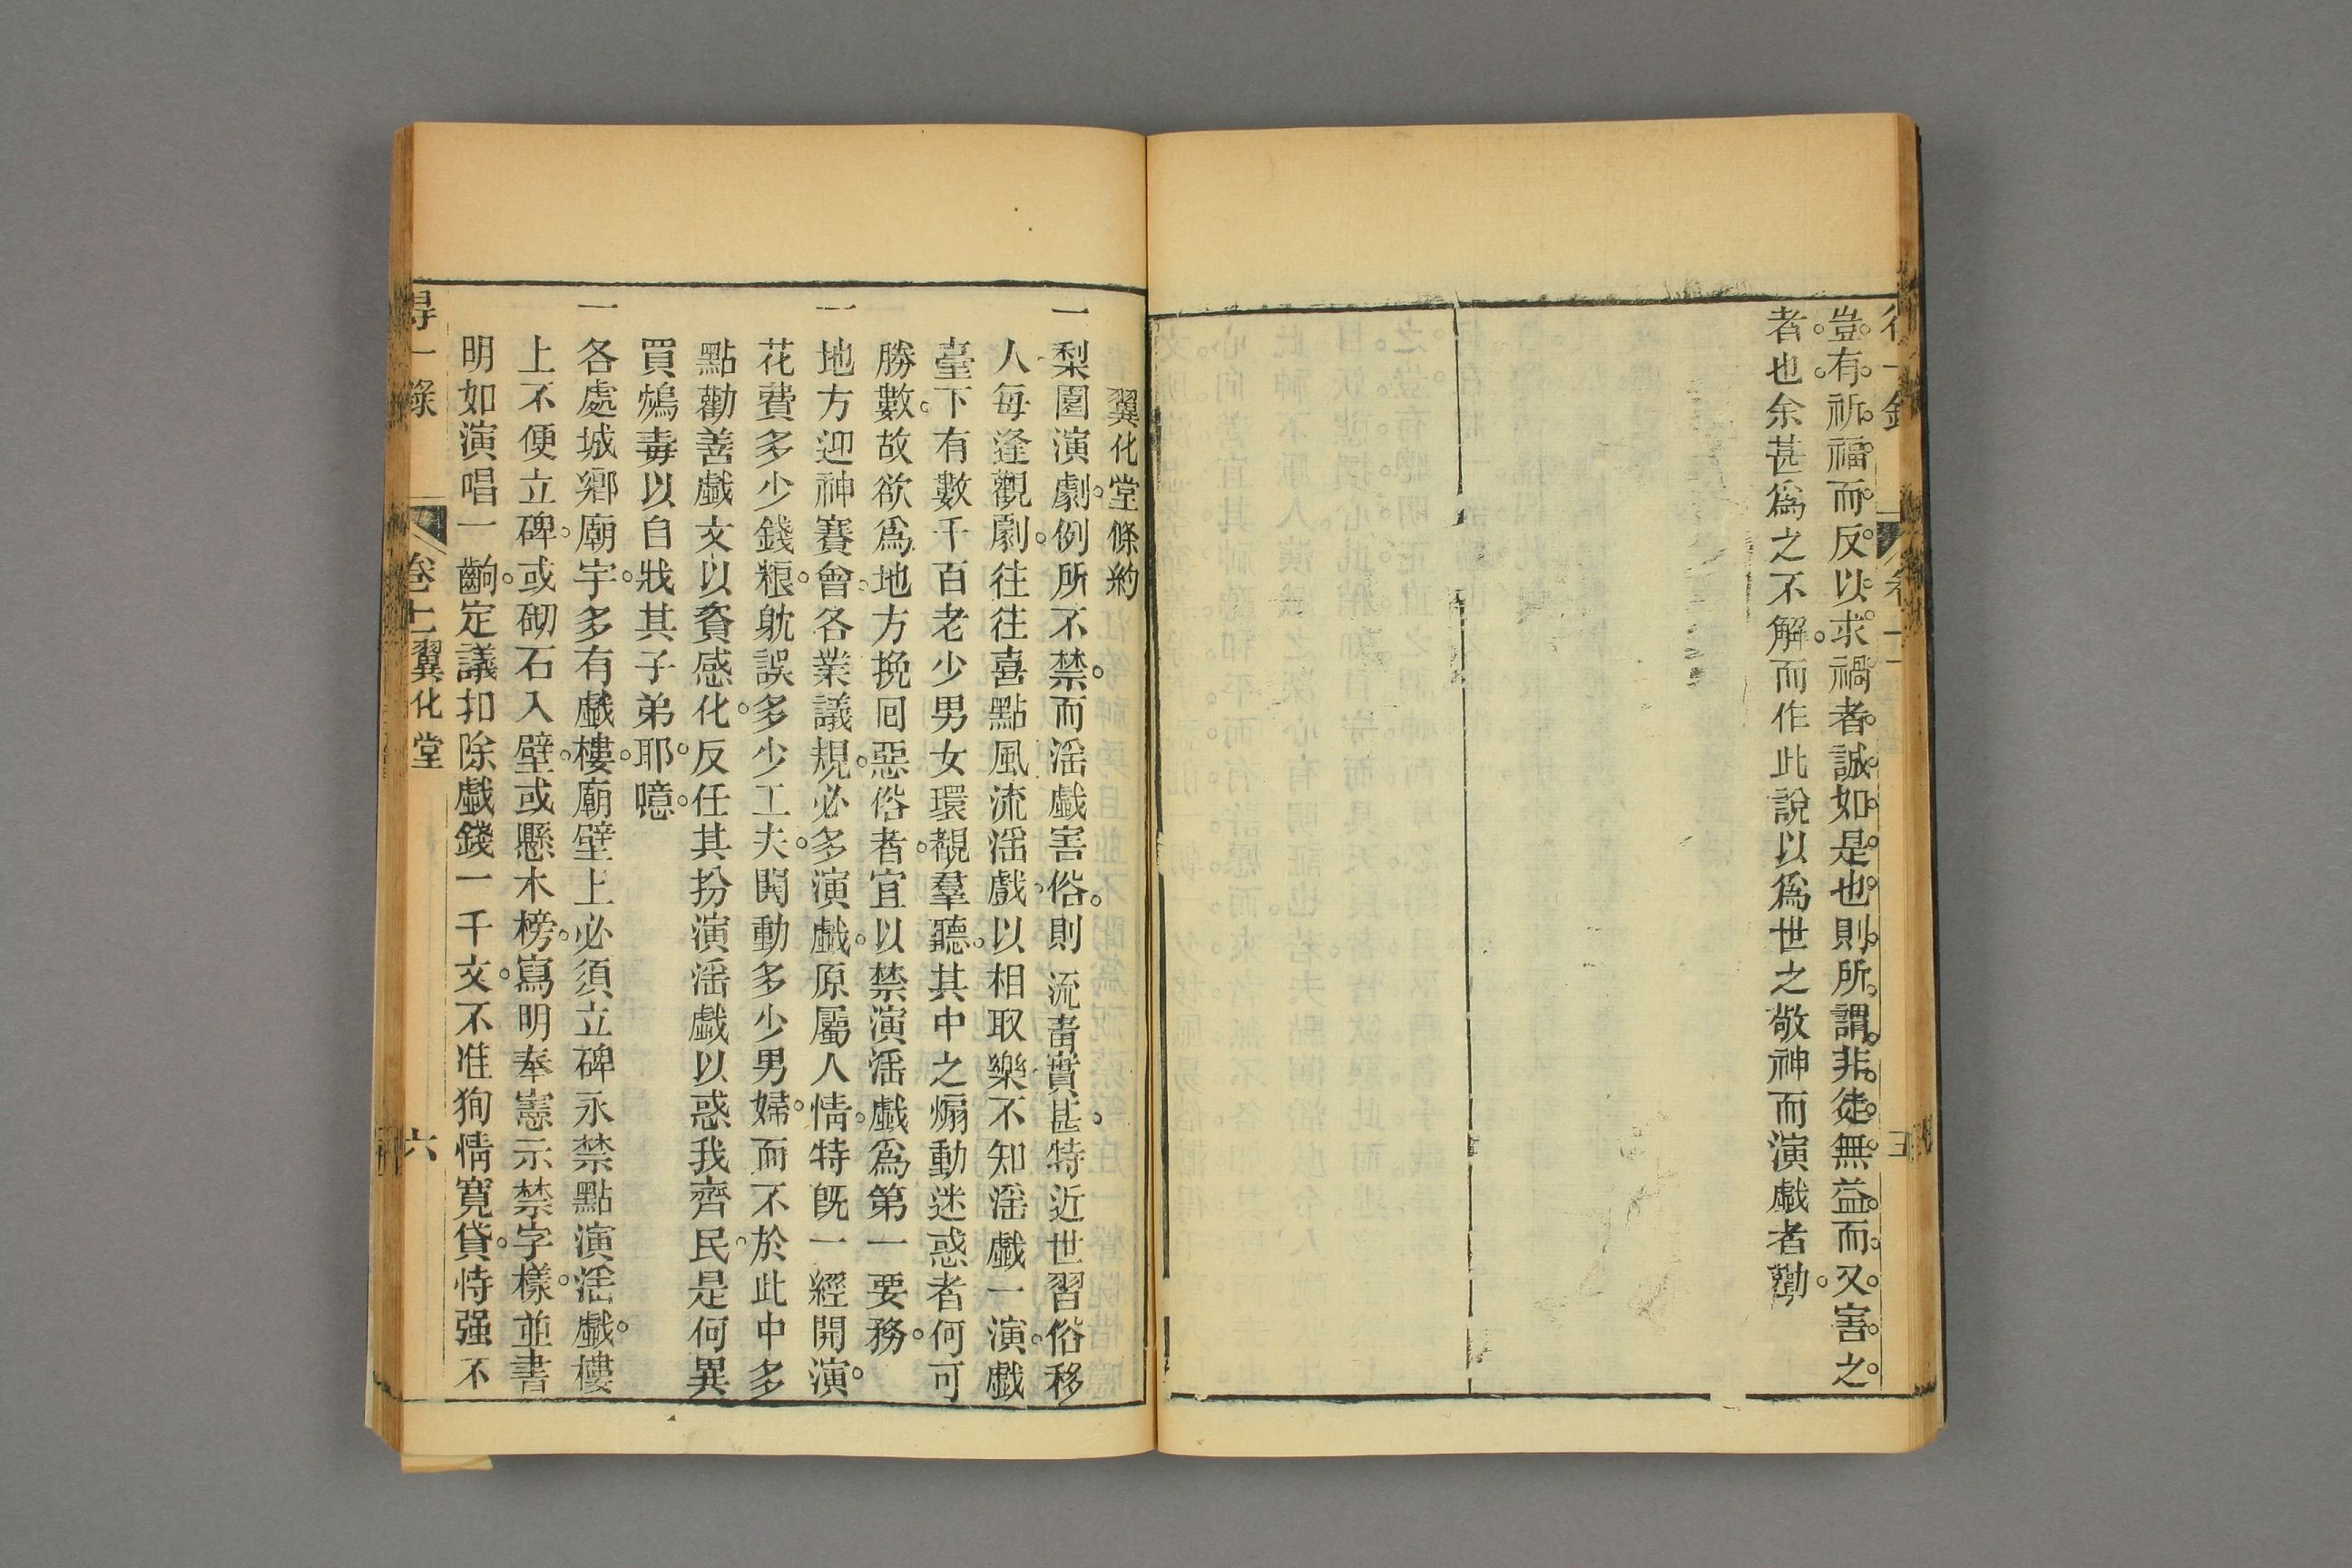 豈有祈福而反以求禍者誠如是也則所謂非徒無益而又害之
者也余甚爲之不解而作此說以爲世之敬神而演戲者勸
翼化堂條約
一梨園演劇例所不禁而淫戲害俗則流毒實甚特近世習俗移
人每逢觀劇往往喜點風流淫戲以相取樂不知淫戲一演戲
臺下有數千百老少男女環觀羣聽其中之煽動迷惑者何可
勝數故欲爲地方挽囘惡俗者宜以禁演淫戲爲第一要務
一地方迎神賽會各業議規必多演戲原屬人情特旣一經開演
花費多少錢粮躭誤多少工夫鬨動多少男婦而不於此中多
點勸善戲文以資感化反任其扮演淫戲以惑我齊民是何異
買鴆毒以自戕其子弟耶噫
一各處城鄉廟宇多有戲樓廟壁上必須立碑永禁點演淫戲樓
上不便立碑或砌石入壁或懸木榜寫明奉憲示禁字樣並書
明如演唱一齣定議扣除戲錢一千文不准狥情寬貸恃强不
得一錄
卷十一翼化堂
六